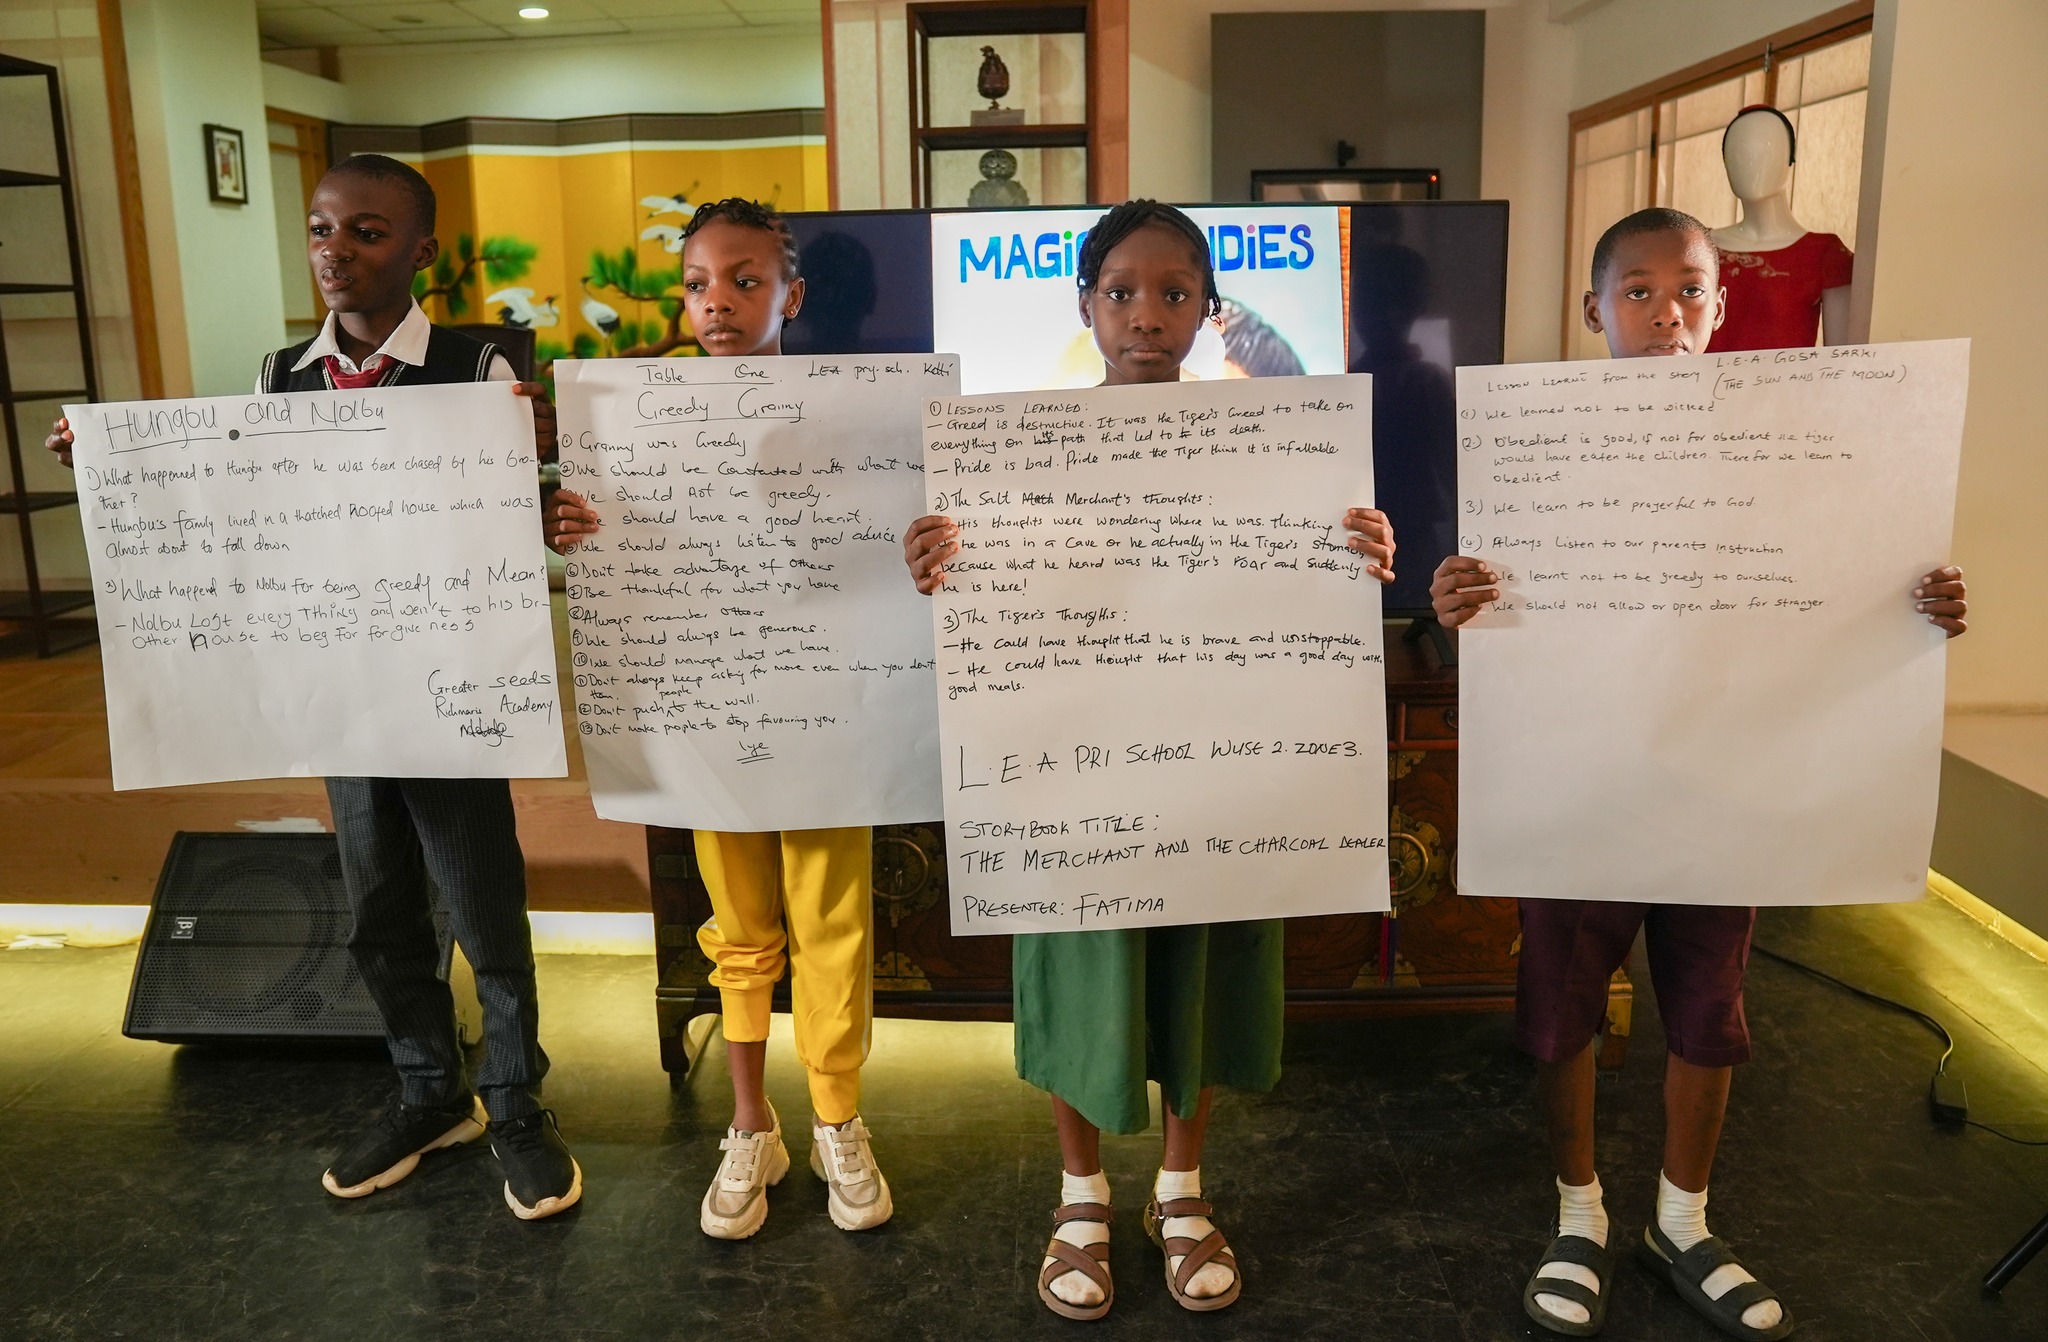 MAGIC NDIES
Hungbu and Nolbu
1) What happenned to Hungbu after he was been chased by his bro-
ther?
- Hungbu's family lived in a thatched roofed house which was
almost about to fall down
3) What happend to Nolbu for being greedy and Mean?
- Nolbu Lost every Tthing and wen't to his br-
other house to beg for forgiveness
Greater seeds
Richmaris Academy
Table One. LEA pry. sch. Ketti
Greedy Granny
① Granny was Greedy
② We should be Constanted with what we
We should not be greedy.
should have a good heart.
We should always listen to good advice
⑥ Don't take advantage of others
⑦ Be thankful for what you have
⑧ Always remember others
⑨ We should always be generous.
⑩ We should manage what we have.
⑪ Don't always keep asking for more even when you don't
people
⑫ Don't push to the wall.
⑬ Don't make people to stop favouring you.
① LESSONS LEARNED:
- Greed is destructive. It was the Tiger's Greed to take on
everything on its path that led to its death.
- Pride is bad. Pride made the Tiger think it is infallable
2) The Salt Merchant's thoughts:
His thoughts were wondering where he was. Thinking
he was in a Cave or he actually in the Tiger's Stomach,
because what he heard was the Tiger's roar and suddenly
he is here!
3) The Tiger's Thoughts:
- He could have thought that he is brave and unstoppable.
- He could have thought that his day was a good day with
good meals.
L.E.A PRI SCHOOL WUSE 2. ZONE 3.
STORYBOOK TITLE:
THE MERCHANT AND THE CHARCOAL DEALER
PRESENTER: FATIMA
L.E.A. GOSA SARKI
LESSON LEARNT from the story (THE SUN AND THE MOON)
(1) We learned not to be wicked
(2) Obedient is good, if not for obedient the tiger
would have eaten the children. Therefor we learn to
obedient.
3) We learn to be prayerful to God.
(4) Always Listen to our parents instruction
We learnt not to be greedy to ourselves.
We should not allow or open door for stranger.